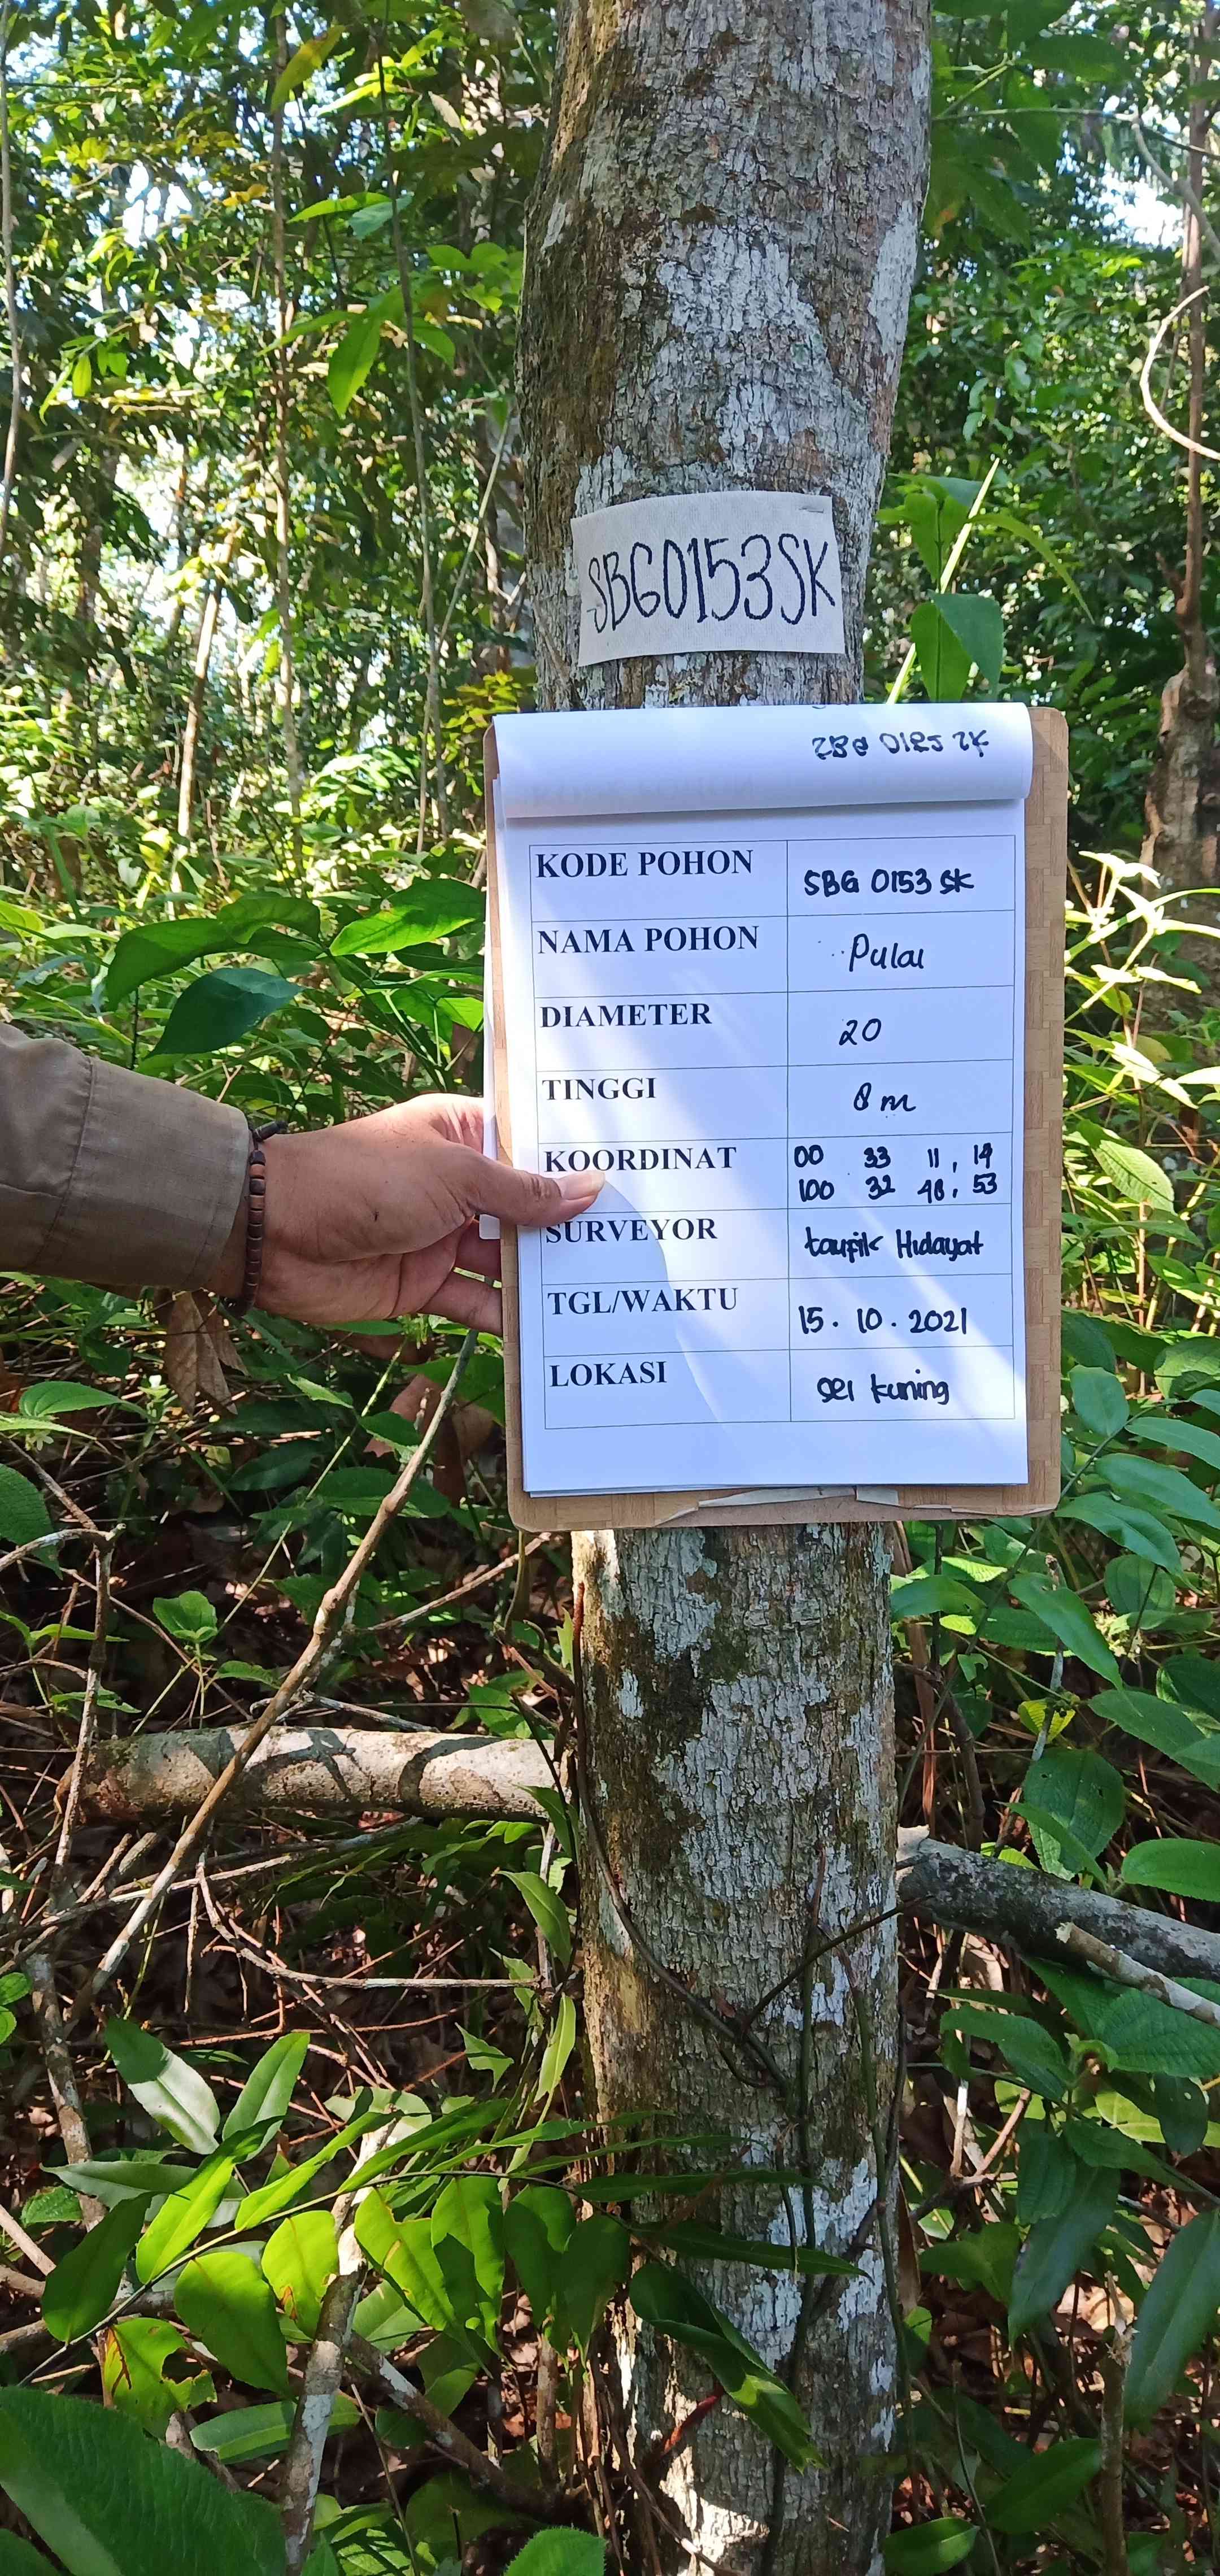 SBG0153SK
KODE POHON SBG 0153 SK
NAMA POHON Pulai
DIAMETER 20
TINGGI 8 m
KOORDINAT 00 33 11, 14
100 32 48, 53
SURVEYOR taufik Hidayat
TGL/WAKTU 15. 10. 2021
LOKASI sei kuning